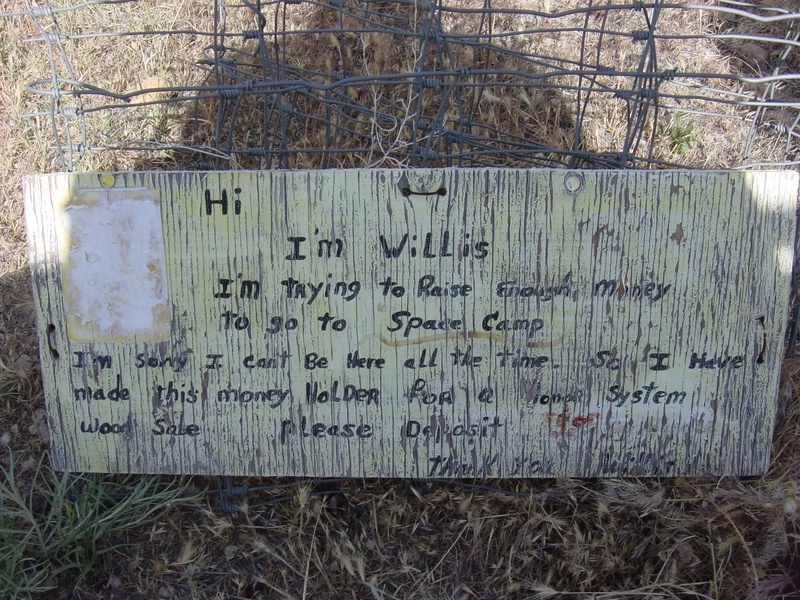 Hi
I'm Willis
I'm trying to Raise Enough money
to go to Space Camp
I'm sorry I can't Be Here all the time. So I Have
made this money HolDer FoR a honor System
Wood Sale Please Deposit
Thank you Willis